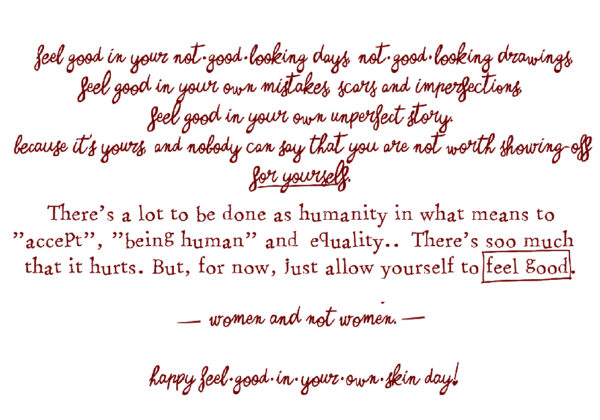 feel good in your not·good·looking days, not·good·looking drawings,
feel good in your own mistakes, scars and imperfections,
feel good in your own unperfect story.
because it's yours, and nobody can say that you are not worth showing-off
for yourself.
There's a lot to be done as humanity in what means to
"accePt", "being human" and equality.. There's soo much
that it hurts. But, for now, just allow yourself to feel good.
— women and not women. —
happy feel·good·in·your·own·skin day!